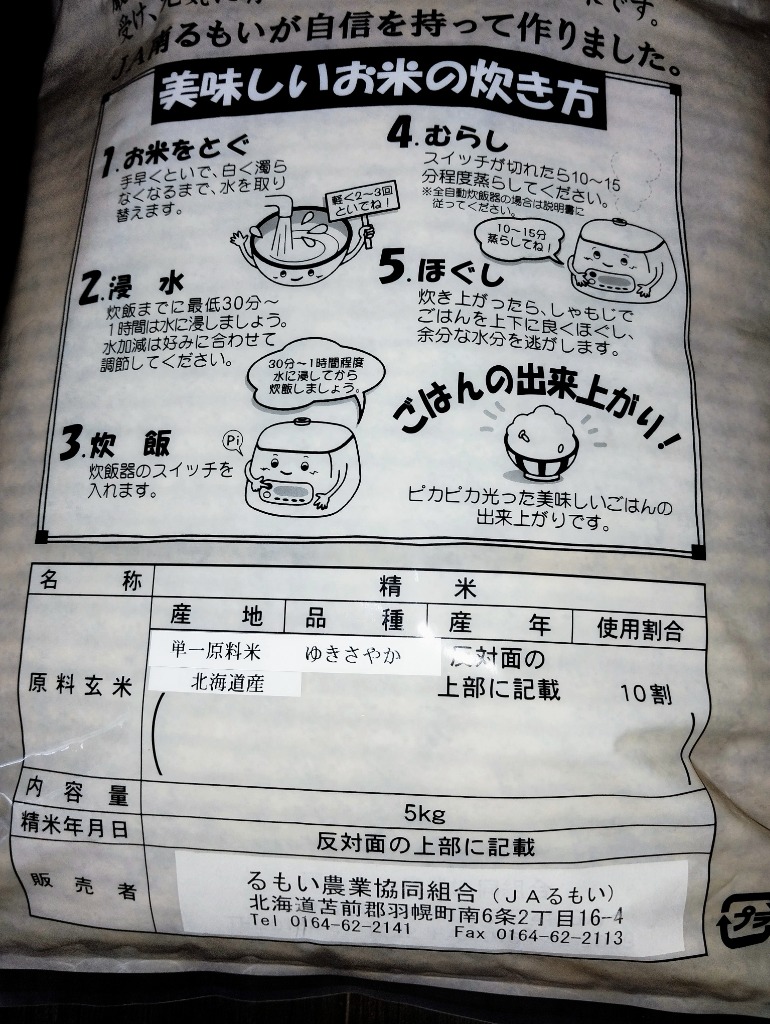 受け、
JA南るもいが自信を持って作りました。
美味しいお米の炊き方
1.お米をとぐ
手早くといで、白く濁ら
なくなるまで、水を取り
替えます。
軽く2〜3回
といでね！
2.浸 水
炊飯までに最低30分〜
1時間は水に浸しましょう。
水加減は好みに合わせて
調節してください。
30分〜1時間程度
水に浸してから
炊飯しましょう。
3.炊 飯
炊飯器のスイッチを
入れます。
Pi
4.むらし
スイッチが切れたら10〜15
分程度蒸らしてください。
※全自動炊飯器の場合は説明書に
従ってください。
10〜15分
蒸らしてね！
5.ほぐし
炊き上がったら、しゃもじで
ごはんを上下に良くほぐし、
余分な水分を逃がします。
ごはんの出来上がり！
ピカピカ光った美味しいごはんの
出来上がりです。
名 称 精 米
原料玄米 産 地 品 種 産 年 使用割合
単一原料米 ゆきさやか 反対面の
北海道産 上部に記載 10割
内 容 量 5kg
精米年月日 反対面の上部に記載
販 売 者
るもい農業協同組合（JAるもい）
北海道苫前郡羽幌町南6条2丁目16-4
Tel 0164-62-2141 Fax 0164-62-2113
プラ